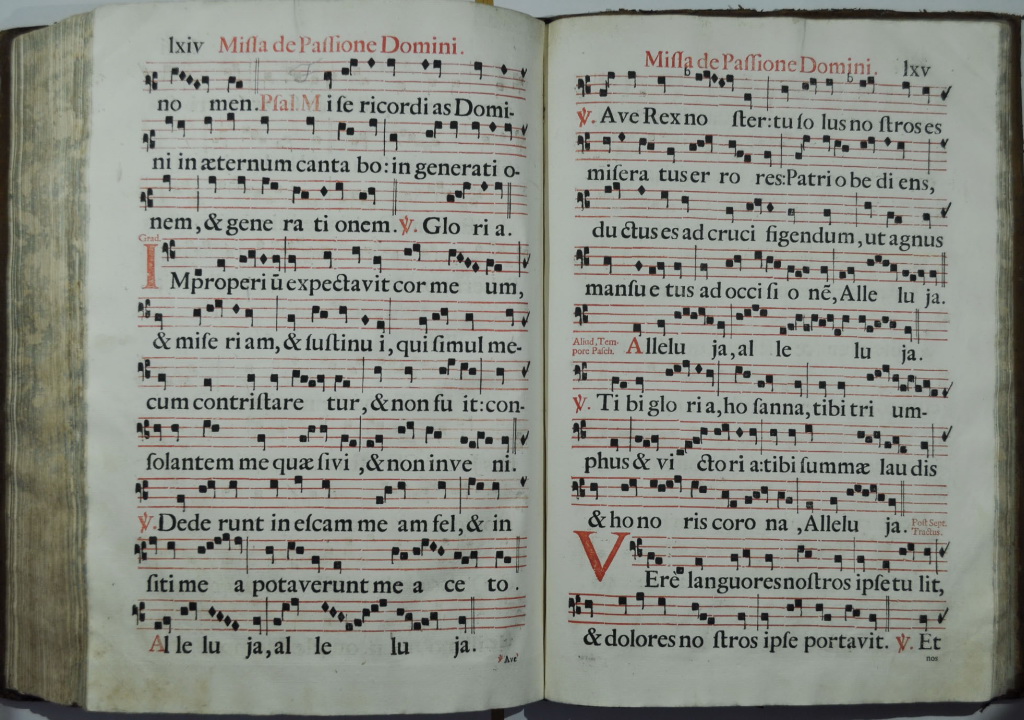 lxiv Miſſa de Paſſione Domini.
no men. Pſal. M i ſe ricordi as Domi-
ni in æternum canta bo: in generati o-
nem, & gene ra ti onem. ℣. Glo ri a.
Grad.
IMproperi ū expectavit cor me um,
& miſe ri am, & ſuſtinu i, qui ſimul me-
cum contriſtare tur, & non fu it: con-
ſolantem me quæ ſivi , & non inve ni.
℣. Dede runt in eſcam me am fel, & in
ſiti me a potaverunt me a ce to .
Al le lu ja, al le lu ja.
℣ Ave
Miſſa de Paſſione Domini. lxv
℣. Ave Rex no ſter: tu ſo lus no ſtros es
miſera tus er ro res: Patri o be di ens,
du ctus es ad cruci figendum, ut agnus
manſu e tus ad occi ſi o nē, Alle lu ja.
Aliud, Tem-
pore Paſch.
Allelu ja, al le lu ja.
℣. Ti bi glo ri a, ho ſanna, tibi tri um-
phus & vi cto ri a: tibi ſummæ lau dis
& ho no ris coro na , Allelu ja.
Poſt Sept.
Tractus.
VErè languores noſtros ipſe tu lit,
& dolores no ſtros ipſe portavit. ℣. Et
nos